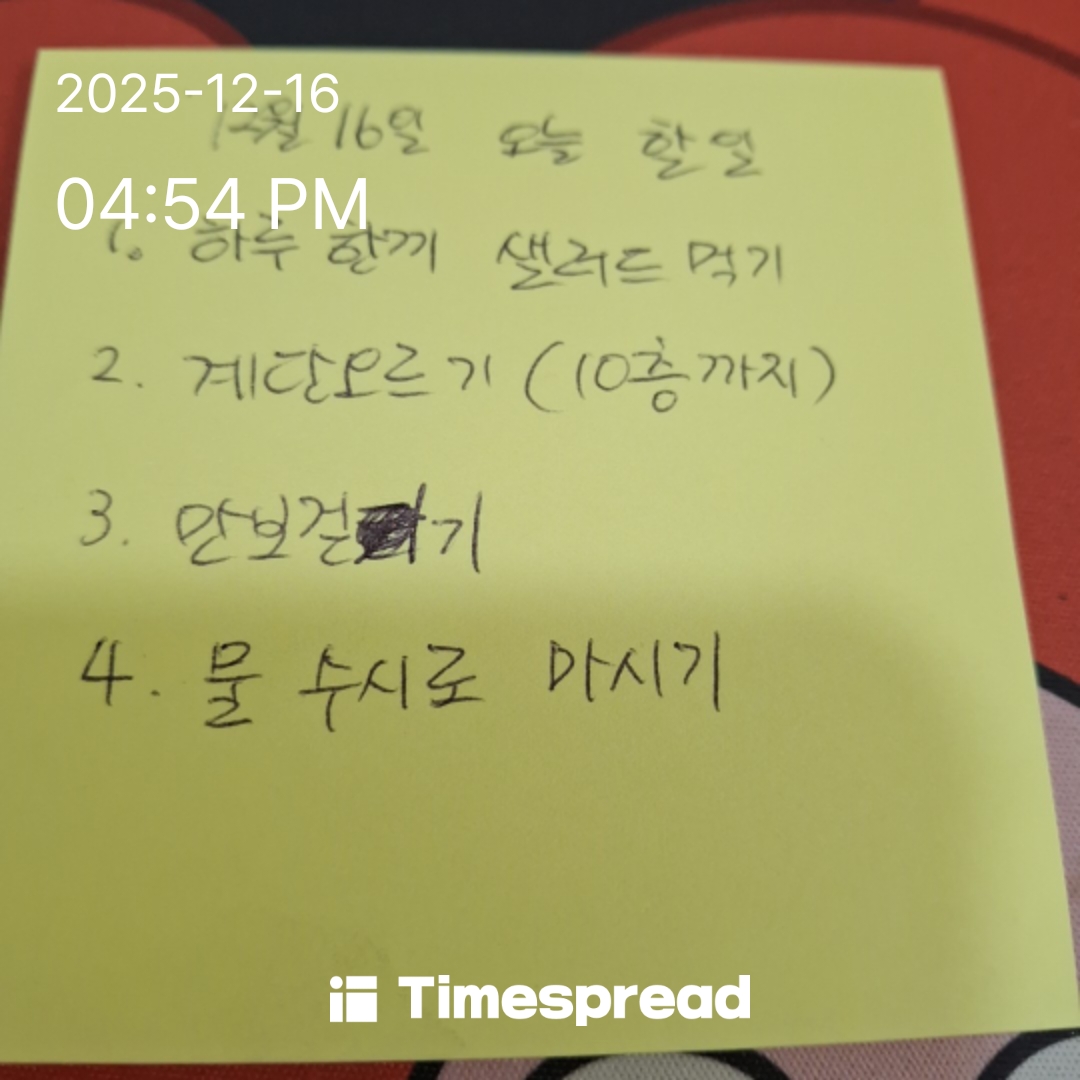 2025-12-16
12월 16일 오늘 할 일
04:54 PM
1. 하루 한끼 샐러드 먹기
2. 계단오르기 (10층까지)
3. 만보걷기
4. 물 수시로 마시기
Timespread